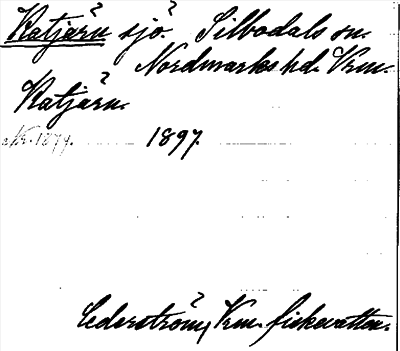 Katjärn sjö. Silbodals sn.
Nordmarks hd. Vrm.
Katjärn.
1897.
Cederström, Vrm. fiskevatten.